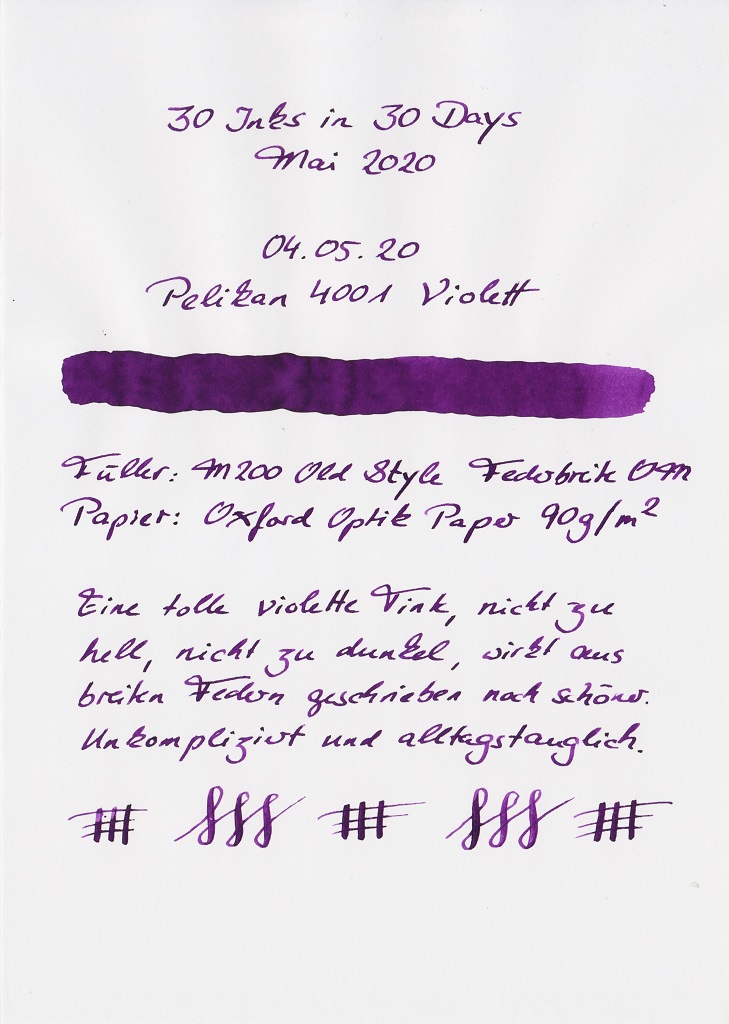 30 Inks in 30 Days
Mai 2020
04.05.20
Pelikan 4001 Violett
Füller: M200 Old Style Federbreite OM
Papier: Oxford Optik Paper 90g/m²
Eine tolle violette Tinte, nicht zu
hell, nicht zu dunkel, wirkt aus
breiten Federn geschrieben noch schöner.
Unkompliziert und alltagstauglich.